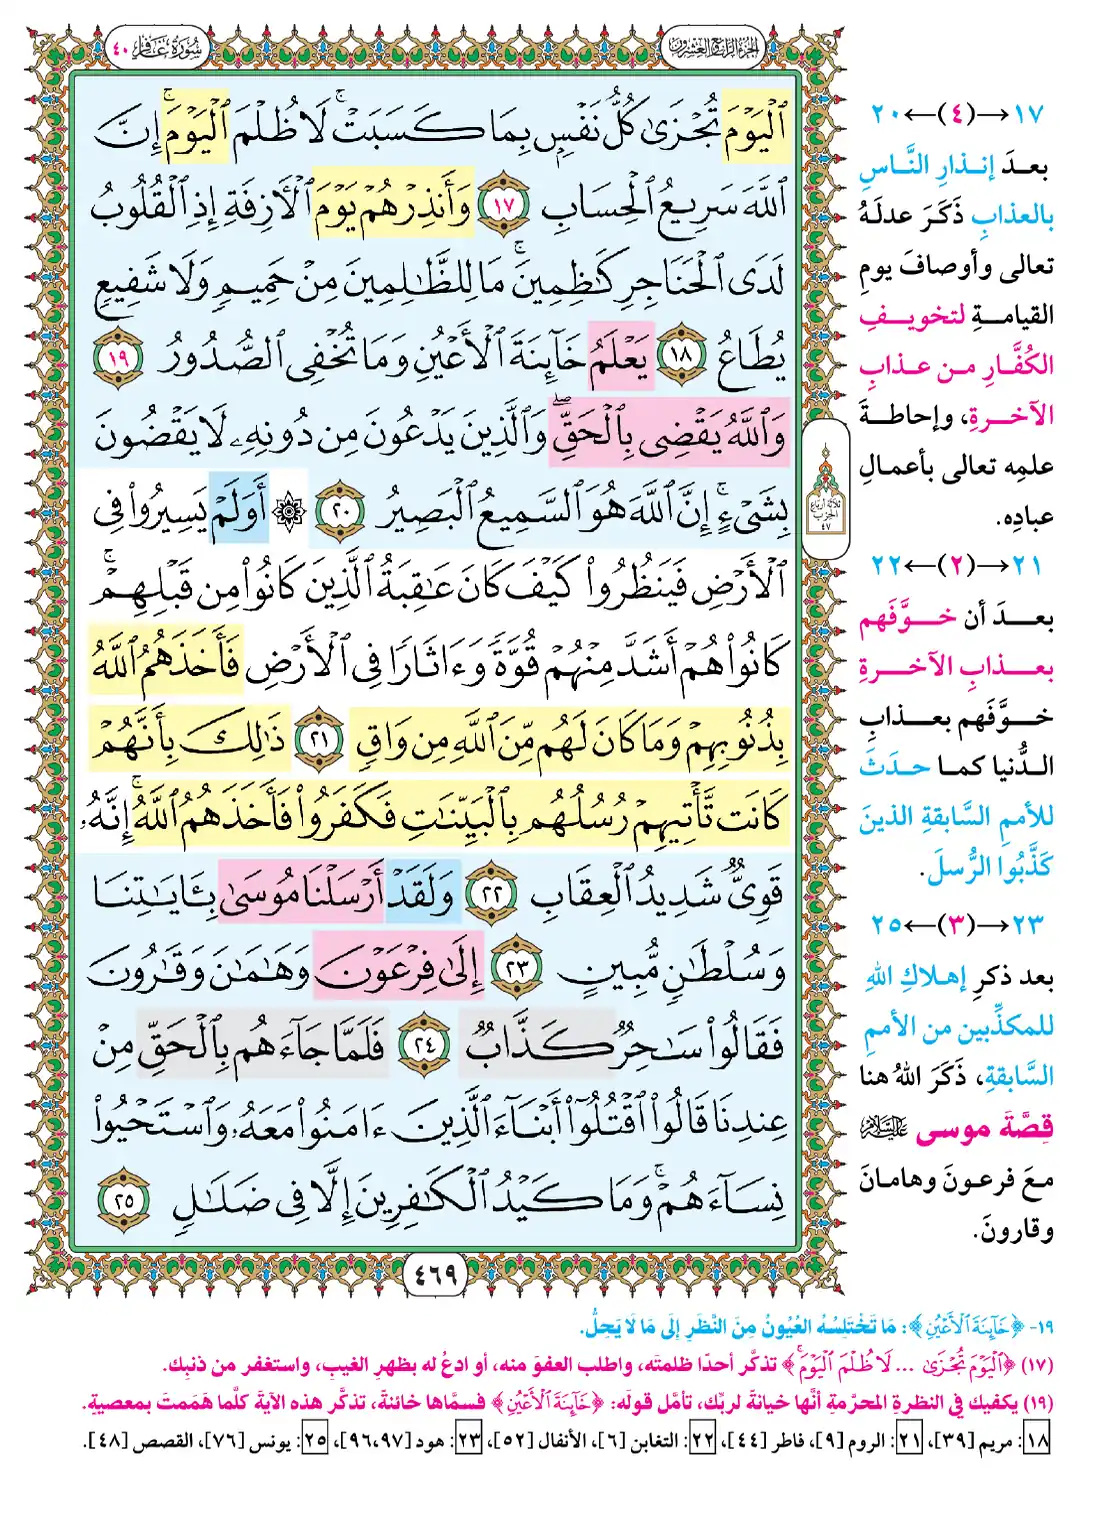 الجزء الرابع والعشرون
سورة غافر ٤٠
ٱلۡيَوۡمَ تُجۡزَىٰ كُلُّ نَفۡسِۭ بِمَا كَسَبَتۡۚ لَا ظُلۡمَ ٱلۡيَوۡمَۚ إِنَّ
ٱللَّهَ سَرِيعُ ٱلۡحِسَابِ ١٧ وَأَنذِرۡهُمۡ يَوۡمَ ٱلۡأٓزِفَةِ إِذِ ٱلۡقُلُوبُ
لَدَى ٱلۡحَنَاجِرِ كَٰظِمِينَۚ مَا لِلظَّٰلِمِينَ مِنۡ حَمِيمٖ وَلَا شَفِيعٖ
يُطَاعُ ١٨ يَعۡلَمُ خَآئِنَةَ ٱلۡأَعۡيُنِ وَمَا تُخۡفِي ٱلصُّدُورُ ١٩
وَٱللَّهُ يَقۡضِي بِٱلۡحَقِّۖ وَٱلَّذِينَ يَدۡعُونَ مِن دُونِهِۦ لَا يَقۡضُونَ
بِشَيۡءٍۗ إِنَّ ٱللَّهَ هُوَ ٱلسَّمِيعُ ٱلۡبَصِيرُ ٢٠ ۞ أَوَلَمۡ يَسِيرُواْ فِي
ٱلۡأَرۡضِ فَيَنظُرُواْ كَيۡفَ كَانَ عَٰقِبَةُ ٱلَّذِينَ كَانُواْ مِن قَبۡلِهِمۡۚ
كَانُواْ هُمۡ أَشَدَّ مِنۡهُمۡ قُوَّةٗ وَءَاثَارٗا فِي ٱلۡأَرۡضِ فَأَخَذَهُمُ ٱللَّهُ
بِذُنُوبِهِمۡ وَمَا كَانَ لَهُم مِّنَ ٱللَّهِ مِن وَاقٖ ٢١ ذَٰلِكَ بِأَنَّهُمۡ
كَانَت تَّأۡتِيهِمۡ رُسُلُهُم بِٱلۡبَيِّنَٰتِ فَكَفَرُواْ فَأَخَذَهُمُ ٱللَّهُۚ إِنَّهُۥ
قَوِيّٞ شَدِيدُ ٱلۡعِقَابِ ٢٢ وَلَقَدۡ أَرۡسَلۡنَا مُوسَىٰ بِـَٔايَٰتِنَا
وَسُلۡطَٰنٖ مُّبِينٍ ٢٣ إِلَىٰ فِرۡعَوۡنَ وَهَٰمَٰنَ وَقَٰرُونَ
فَقَالُواْ سَٰحِرٞ كَذَّابٞ ٢٤ فَلَمَّا جَآءَهُم بِٱلۡحَقِّ مِنۡ
عِندِنَا قَالُواْ ٱقۡتُلُوٓاْ أَبۡنَآءَ ٱلَّذِينَ ءَامَنُواْ مَعَهُۥ وَٱسۡتَحۡيُواْ
نِسَآءَهُمۡۚ وَمَا كَيۡدُ ٱلۡكَٰفِرِينَ إِلَّا فِي ضَلَٰلٖ ٢٥
ثلاثة أرباع
الحزب
٤٧
٤٦٩
١٧→(٤)←٢٠
بعدَ إنذارِ النَّاسِ
بالعذابِ ذَكَرَ عدلَهُ
تعالى وأوصافَ يومِ
القيامةِ لتخويفِ
الكُفَّارِ من عذابِ
الآخرةِ، وإحاطةَ
علمِه تعالى بأعمالِ
عبادِه.
٢١→(٢)←٢٢
بعدَ أن خوَّفَهم
بعذابِ الآخرةِ
خوَّفَهم بعذابِ
الدُّنيا كما حدَثَ
للأممِ السَّابقةِ الذينَ
كَذَّبُوا الرُّسلَ.
٢٣→(٣)←٢٥
بعد ذكرِ إهلاكِ اللهِ
للمكذِّبين من الأممِ
السَّابقةِ، ذَكَرَ اللهُ هنا
قِصَّةَ موسى عليه السلام
معَ فرعونَ وهامانَ
وقارونَ.
١٩- ﴿خَآئِنَةَ ٱلۡأَعۡيُنِ﴾: مَا تَخْتَلِسُهُ العُيُونُ مِنَ النَّظَرِ إِلَى مَا لَا يَحِلُّ.
(١٧) ﴿ٱلۡيَوۡمَ تُجۡزَىٰ ... لَا ظُلۡمَ ٱلۡيَوۡمَۚ﴾ تذكَّر أحدًا ظلمتَه، واطلب العفوَ منه، أو ادعُ له بظهرِ الغيبِ، واستغفر من ذنبِك.
(١٩) يكفيك في النظرةِ المحرَّمةِ أنَّها خيانةٌ لربِّك، تأمَّل قولَه: ﴿خَآئِنَةَ ٱلۡأَعۡيُنِ﴾ فسمَّاها خائنةً، تذكَّر هذه الآيةَ كلَّما هَمَمتَ بمعصيةٍ.
١٨: مريم [٣٩]، ٢١: الروم [٩]، فاطر [٤٤]، ٢٢: التغابن [٦]، الأنفال [٥٢]، ٢٣: هود [٩٦،٩٧]، ٢٥: يونس [٧٦]، القصص [٤٨].